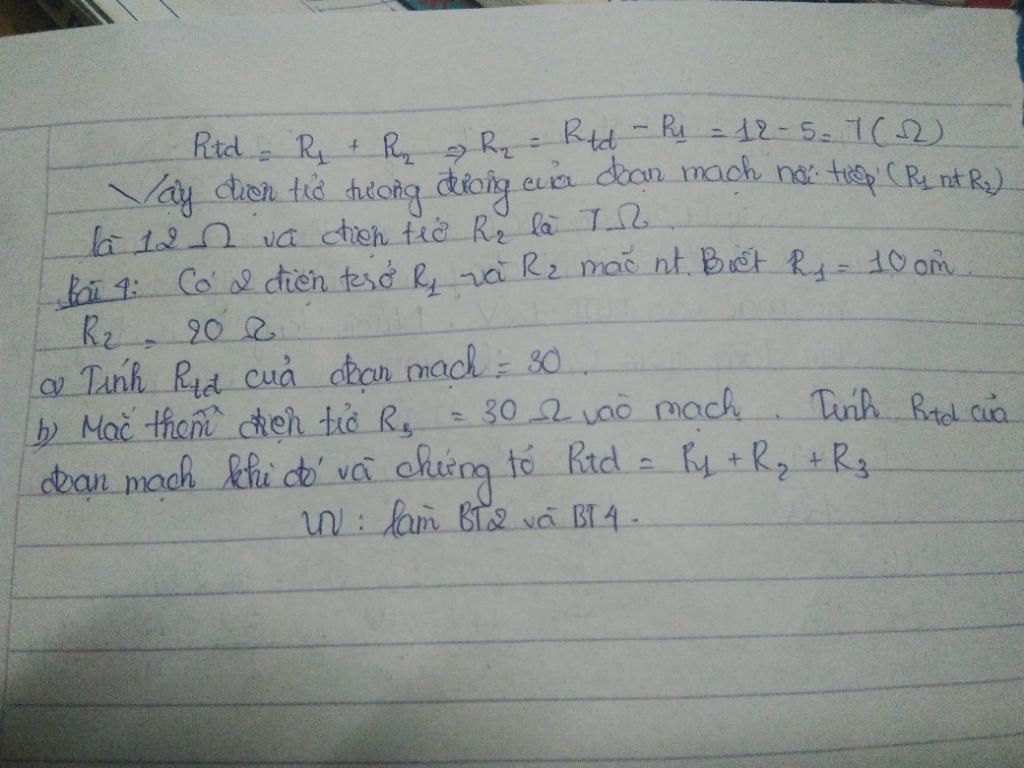 Rtd = R₁ + R₂ ⇒ R₂ = Rtd - R₁ = 12 - 5 = 7 (Ω)
Vậy điện trở tương đương của đoạn mạch nối tiếp (R₁ nt R₂)
là 12 Ω và điện trở R₂ là 7 Ω.
Bài 4: Có 2 điện trở R₁ và R₂ mắc nt. Biết R₁ = 10 ôm.
R₂ = 20 Ω
a) Tính Rtd của đoạn mạch = 30.
b) Mắc thêm điện trở R₃ = 30 Ω vào mạch. Tính Rtd của
đoạn mạch khi đó và chứng tỏ Rtd = R₁ + R₂ + R₃
VN: làm BT2 và BT4.